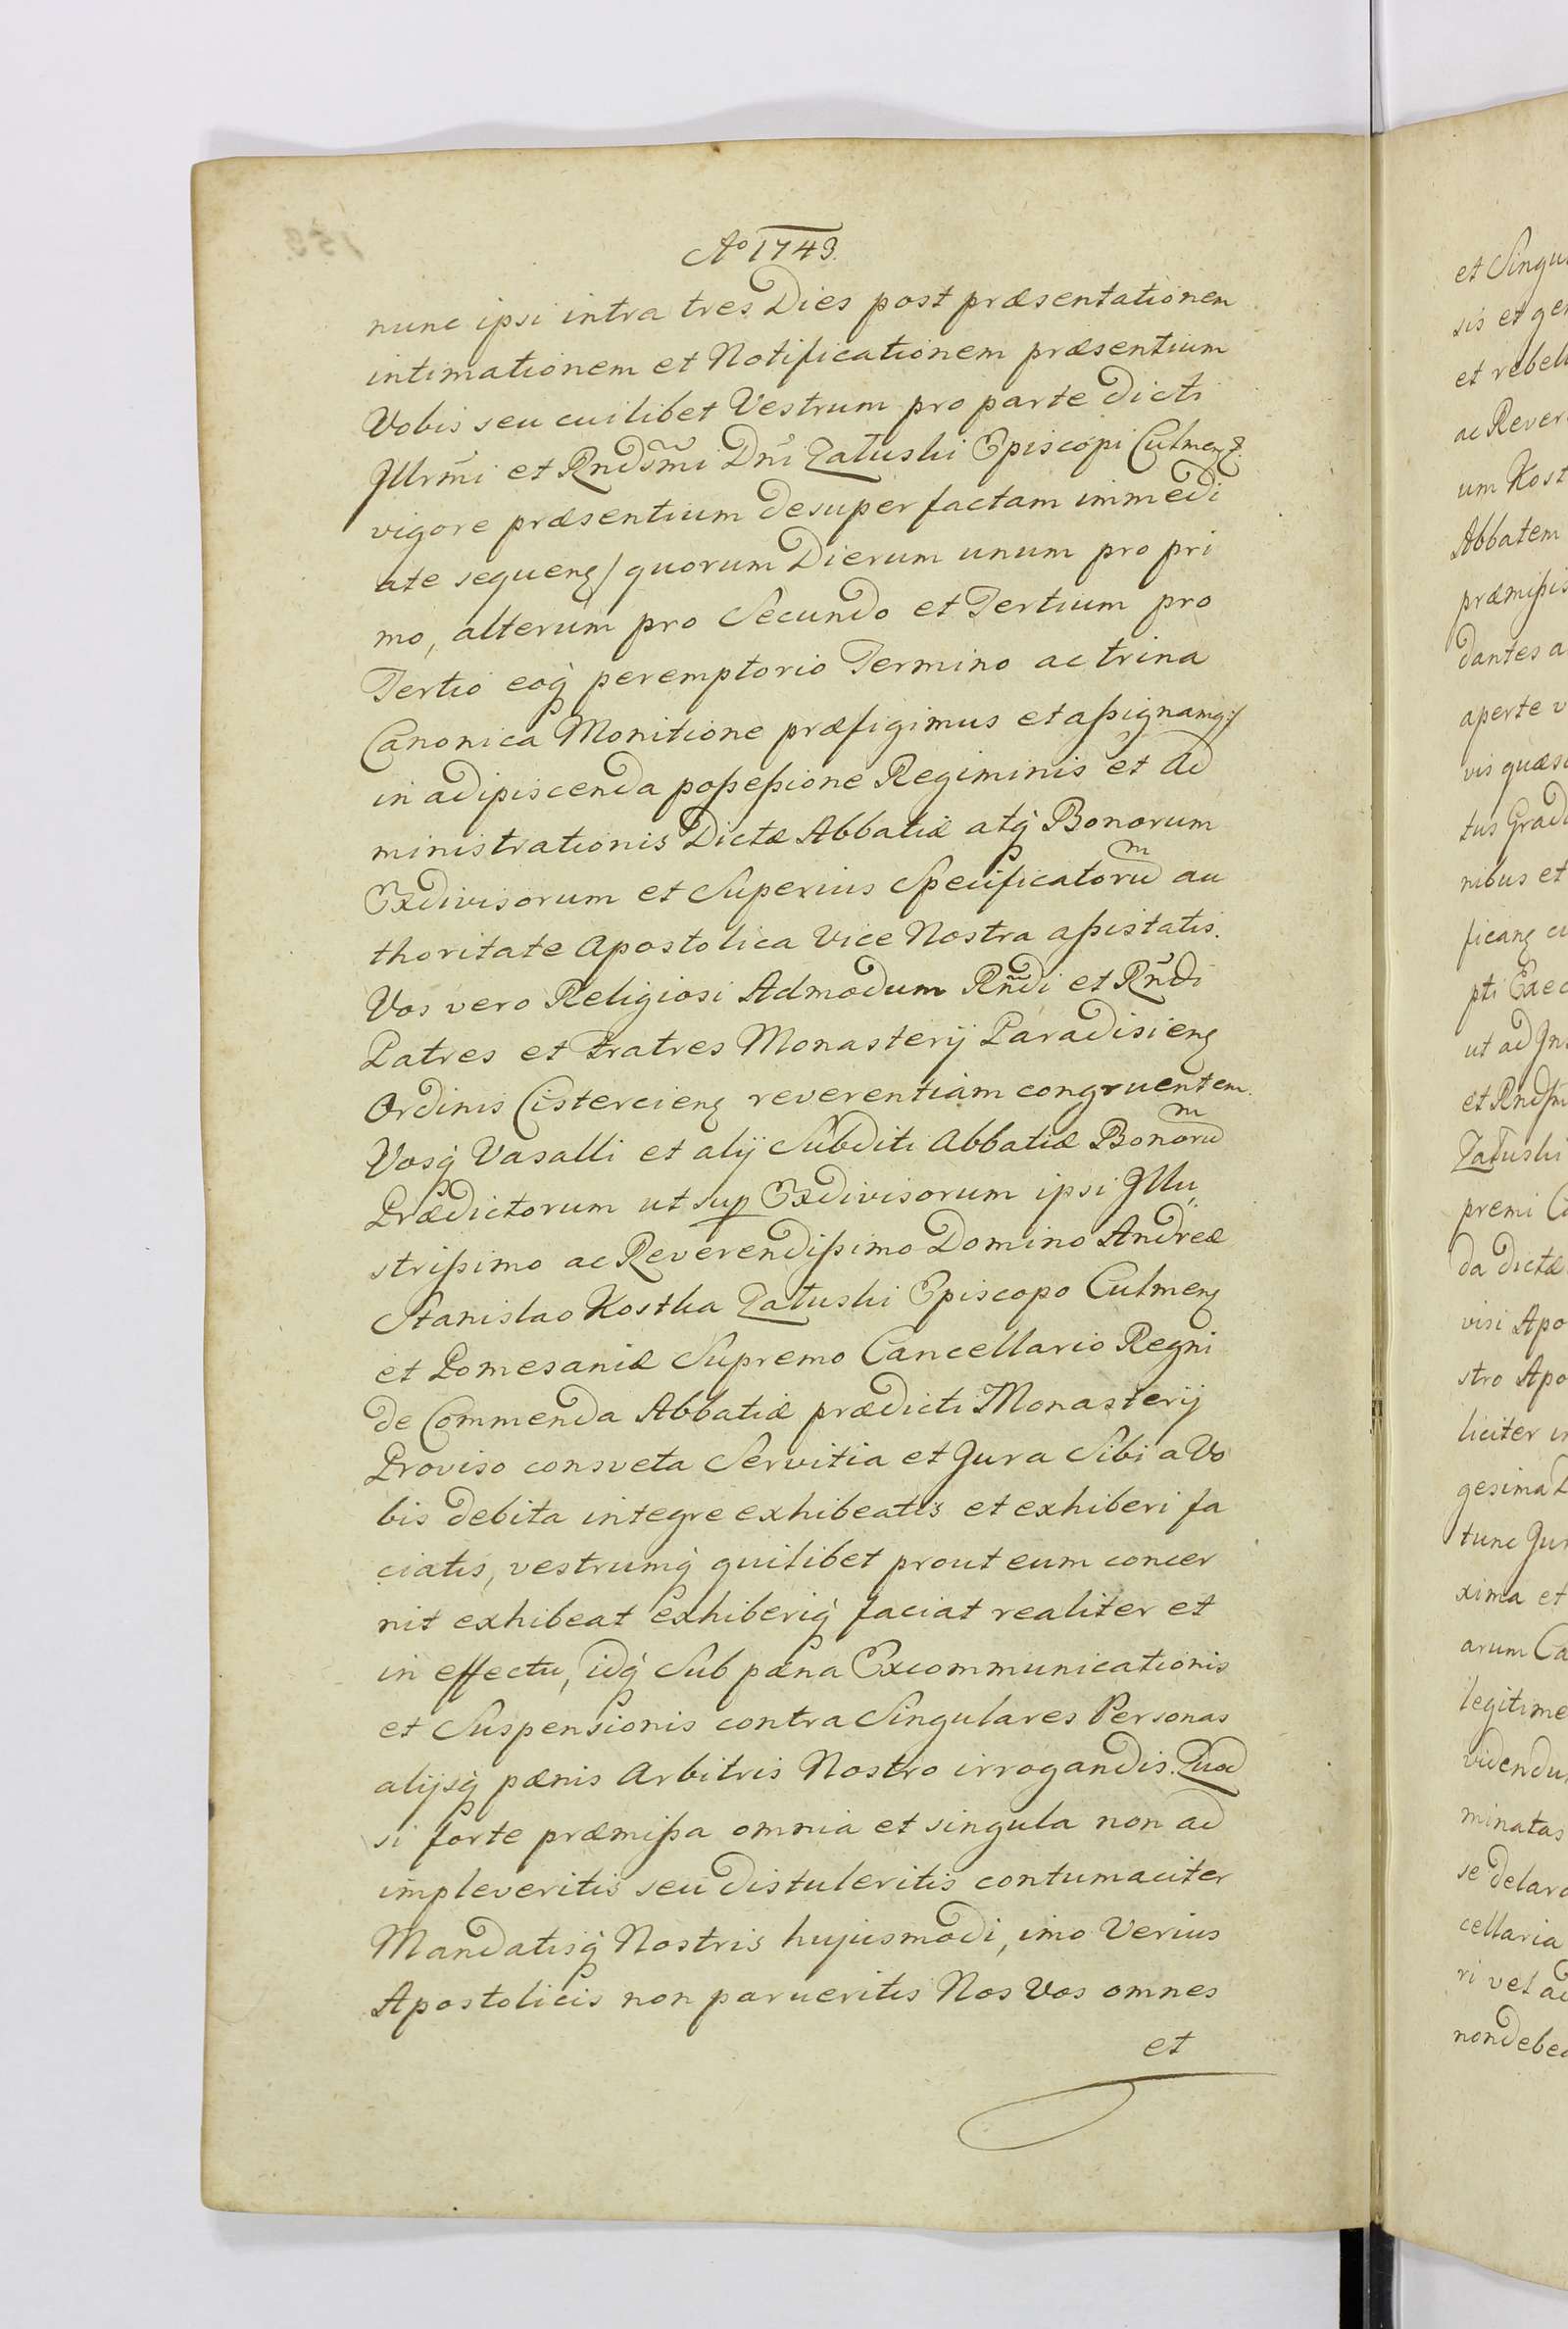 Ao 1743.
nunc ipsi intra tres Dies post præsentationem
intimationem et Notificationem præsentium
Vobis seu cuilibet Vestrum pro parte Dicti
Jllrm̃i et Rndsm̃i Dn̄i Załuski Episcopi Culmenꝫ.
vigore præsentium desuper factam immedi
ate sequenꝫ / quorum Dierum unum pro pri
mo, alterum pro Secundo et Tertium pro
Tertio eoq̀ peremptorio Termino ac trina
Canonica Monitione præfigimus et aßignamq:/
in adipiscenda poßeßione Regiminis et Ad
ministrationis Dictæ Abbatiæ atq̀ Bonorum
Exdivisorum et Superius Specificatorũm au
thoritate Apostolica Vice Nostra aßistatis.
Vos vero Religiosi Admodum Rn̄di et Rn̄di
Patres et Fratres Monasterij Paradisienꝫ
Ordinis Cistercienꝫ reverentiam congruentem.
Vosq̀ Vasalli et alij Subditi Abbatiæ Bonorũm
Prædictorum ut sup Exdivisorum ipsi Jllu„
strißimo ac Reverendißimo Domino Andreæ
Stanislao Kostka Załuski Episcopo Culmenꝫ
et Pomesaniæ Supremo Cancellario Regni
de Commenda Abbatiæ prædicti Monasterij
Proviso consveta Servitia et Jura Sibi a Vo
bis debita integre exhibeatis et exhiberi fa
ciatis, vestrumq̀ quilibet prout eum concer
nit exhibeat exhiberiq̀ faciat realiter et
in effectu, idq̀ Sub pæna Excommunicationis
et Suspensionis contra Singulares Personas
alijsq̀ pænis Arbitris Nostro irrogandis. Quod
si forte præmißa omnia et singula non ad
impleveritis seu distuleritis contumaciter
Mandatisq̀ Nostris hujusmodi, imo Verius
Apostolicis non parueritis Nos Vos omnes
et
et Singu
sis et gen
et rebell
ac Rever
um Kost
Abbatem
præmißis
dantes a
aperte v
vis quæs
tus Gradu
nibus et
ficanꝫ cu
pti Exec
ut ad Jns
et Rndßm
Załuski
premi Ca
da dictæ
visi Apo
stro Apo
liciter in
gesima D
tunc Jur
xima et
arum Ca
legitime
videndu
minatas
se delara
cellaria
ri vel ad
non debea